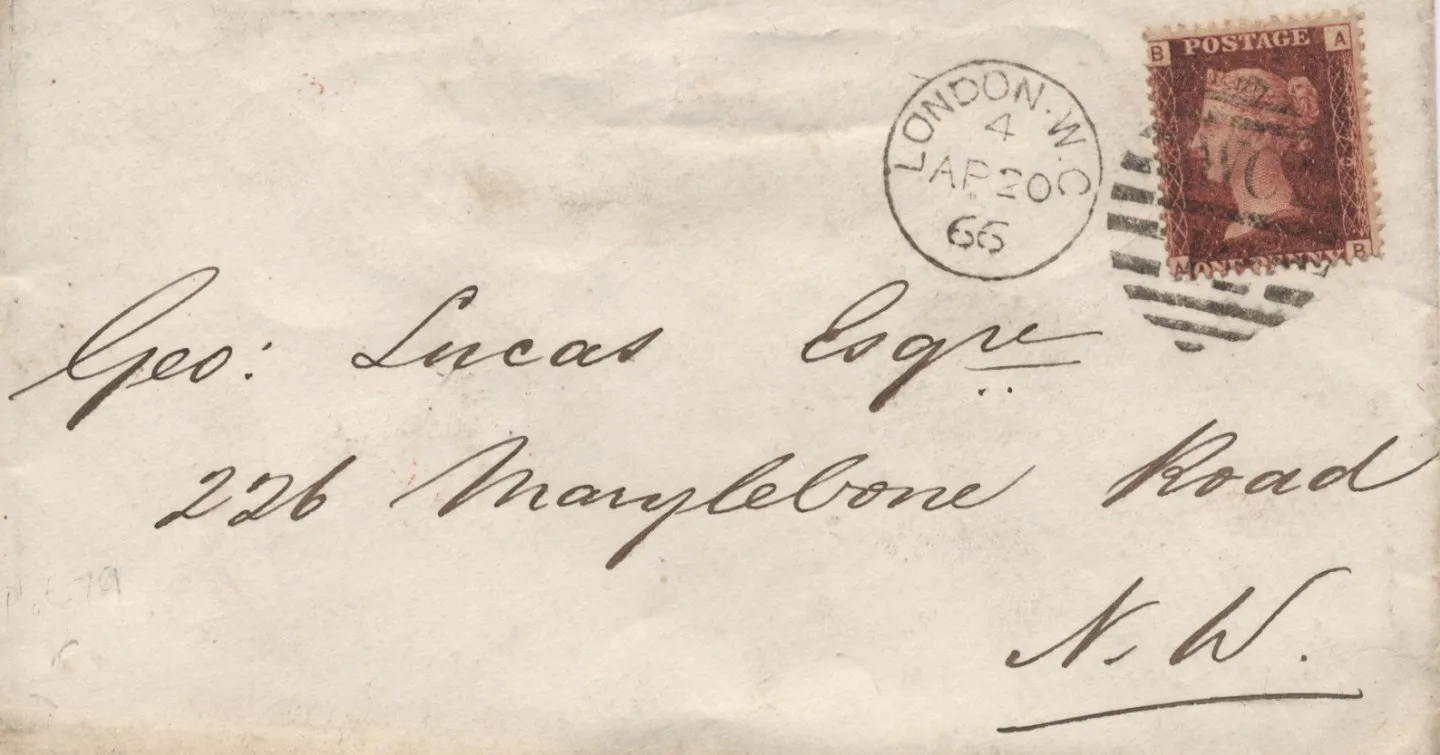 B POSTAGE A
LONDON·W.C
4
AP 20
66
WC
A ONE PENNY B
Geo: Lucas Esqre
226 Marylebone Road
N. W.